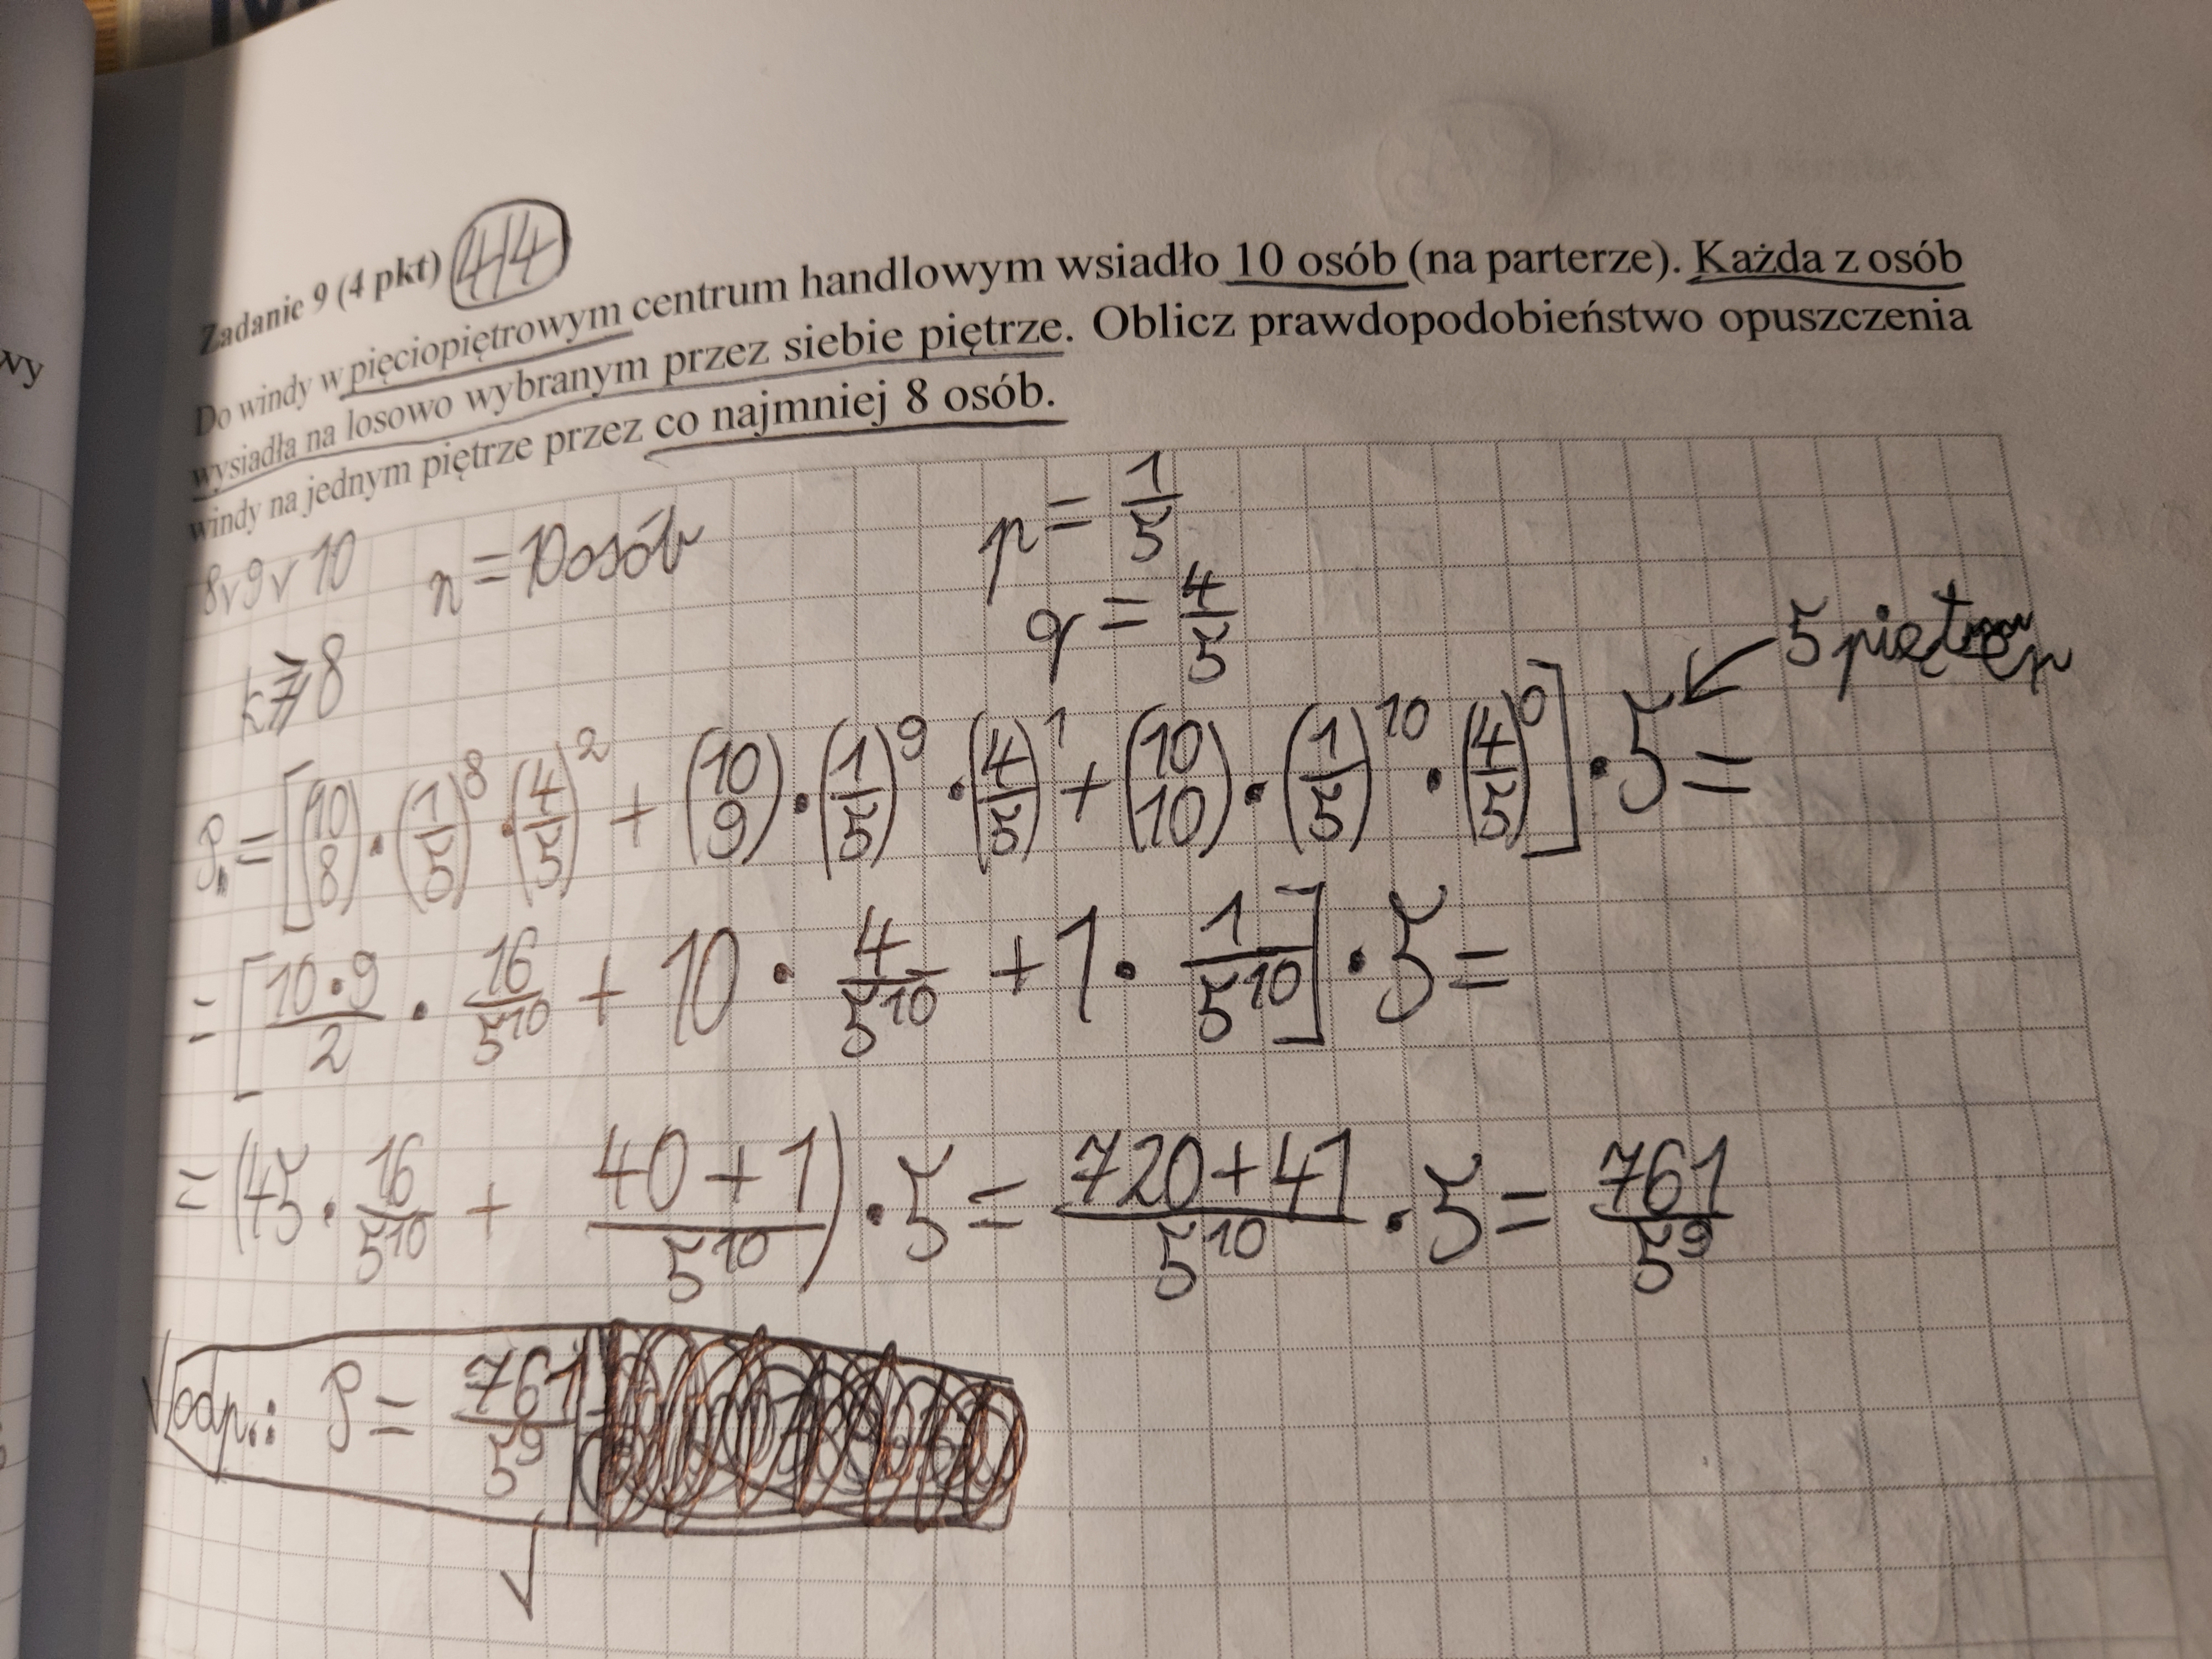 Zadanie 9 (4 pkt) 4/4
Do windy w pięciopiętrowym centrum handlowym wsiadło 10 osób (na parterze). Każda z osób
wysiadła na losowo wybranym przez siebie piętrze. Oblicz prawdopodobieństwo opuszczenia
windy na jednym piętrze przez co najmniej 8 osób.
8 v 9 v 10 n = 10 osób p = 1/5
q = 4/5
k ≥ 8 5 pięter
P = [(10 8) · (1/5)^8 · (4/5)^2 + (10 9) · (1/5)^9 · (4/5)^1 + (10 10) · (1/5)^10 · (4/5)^0] · 5 =
= [10·9/2 · 16/5^10 + 10 · 4/5^10 + 1 · 1/5^10] · 5 =
= (45 · 16/5^10 + 40+1/5^10) · 5 = 720+41/5^10 · 5 = 761/5^9
√ odp.: P = 761/5^9
√
wy